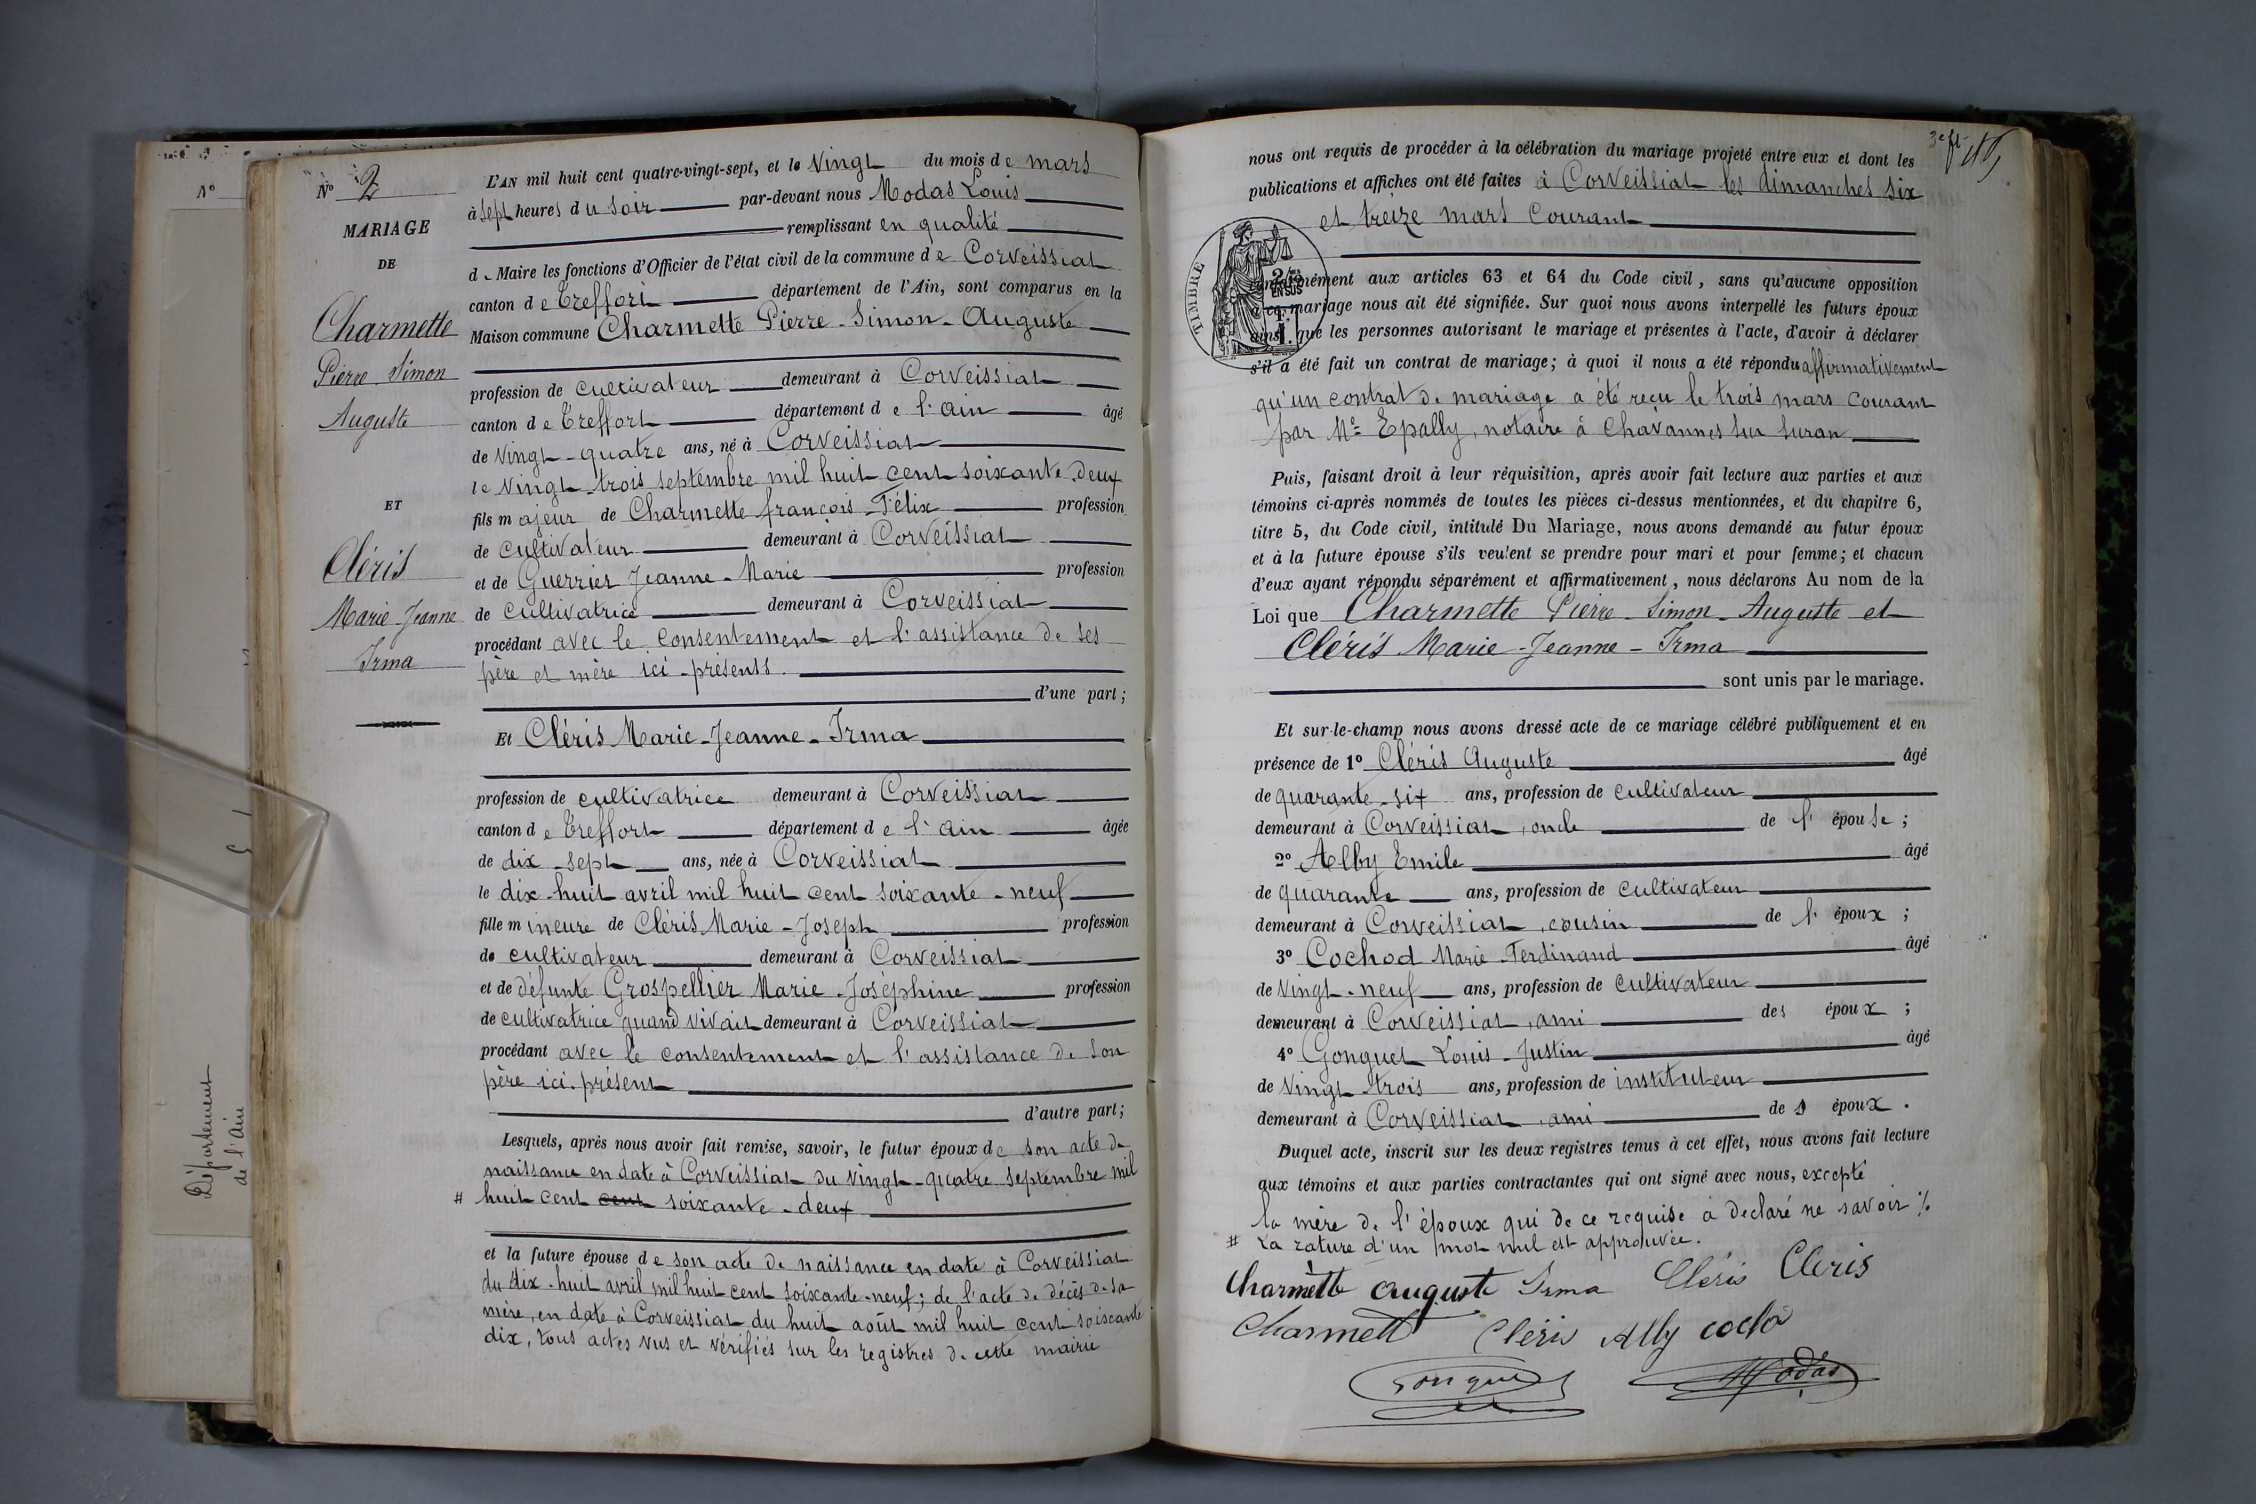 N° 2
MARIAGE
DE
Charmette
Pierre-Simon
Auguste
ET
Cléris
Marie-Jeanne
Irma
L'AN mil huit cent quatre-vingt-sept, et le vingt du mois de mars
à sept heures du soir par-devant nous Modas Louis
remplissant en qualité
de Maire les fonctions d'Officier de l'état civil de la commune de Corveissiat
canton de Treffort département de l'Ain, sont comparus en la
Maison commune Charmette Pierre-Simon-Auguste
profession de cultivateur demeurant à Corveissiat
canton de Treffort département de l'ain âgé
de vingt-quatre ans, né à Corveissiat
le vingt-trois septembre mil huit cent soixante-deux
fils majeur de Charmette françois-Félix profession
de cultivateur demeurant à Corveissiat
et de Guerrier Jeanne-Marie profession
de cultivatrice demeurant à Corveissiat
procédant avec le consentement et l'assistance de ses
père et mère ici-présents.
d'une part;
Et Cléris Marie-Jeanne-Irma
profession de cultivatrice demeurant à Corveissiat
canton de Treffort département de l'ain âgée
de dix-sept ans, née à Corveissiat
le dix-huit avril mil huit cent soixante-neuf
fille mineure de Cléris Marie-Joseph profession
de cultivateur demeurant à Corveissiat
et de défunte Grospellier Marie-Joséphine profession
de cultivatrice quand vivait demeurant à Corveissiat
procédant avec le consentement et l'assistance de son
père ici-présent
d'autre part;
Lesquels, après nous avoir fait remise, savoir, le futur époux de son acte de
naissance en date à Corveissiat du vingt-quatre septembre mil
# huit cent cent soixante-deux
et la future épouse de son acte de naissance en date à Corveissiat
du dix-huit avril mil huit cent soixante-neuf; de l'acte de décès de sa
mère, en date à Corveissiat du huit août mil huit cent soixante
dix, tous actes vus et vérifiés sur les registres de cette mairie
Département
de l'Ain
nous ont requis de procéder à la célébration du mariage projeté entre eux et dont les
publications et affiches ont été faites à Corveissiat les dimanches six
et treize mars courant
TIMBRE
2/10
EN SUS
conformément aux articles 63 et 64 du Code civil, sans qu'aucune opposition
à ce mariage nous ait été signifiée. Sur quoi nous avons interpellé les futurs époux
ainsi que les personnes autorisant le mariage et présentes à l'acte, d'avoir à déclarer
s'il a été fait un contrat de mariage; à quoi il nous a été répondu affirmativement
qu'un contrat de mariage a été reçu le trois mars courant
par Me Epally, notaire à Chavannes sur Suran
Puis, faisant droit à leur réquisition, après avoir fait lecture aux parties et aux
témoins ci-après nommés de toutes les pièces ci-dessus mentionnées, et du chapitre 6,
titre 5, du Code civil, intitulé Du Mariage, nous avons demandé au futur époux
et à la future épouse s'ils veulent se prendre pour mari et pour femme; et chacun
d'eux ayant répondu séparément et affirmativement, nous déclarons Au nom de la
Loi que Charmette Pierre-Simon-Auguste et
Cléris Marie-Jeanne-Irma
sont unis par le mariage.
Et sur-le-champ nous avons dressé acte de ce mariage célébré publiquement et en
présence de 1° Cléris Auguste âgé
de quarante-six ans, profession de cultivateur
demeurant à Corveissiat, oncle de l'épouse;
2° Alby Emile âgé
de quarante ans, profession de cultivateur
demeurant à Corveissiat, cousin de l'époux;
3° Cochod Marie-Ferdinand âgé
de vingt-neuf ans, profession de cultivateur
demeurant à Corveissiat, ami des époux;
4° Gonguet Louis-Justin âgé
de vingt-trois ans, profession de instituteur
demeurant à Corveissiat, ami des époux.
Duquel acte, inscrit sur les deux registres tenus à cet effet, nous avons fait lecture
aux témoins et aux parties contractantes qui ont signé avec nous, excepté
la mère de l'époux qui de ce requise a déclaré ne savoir ./.
# La rature d'un mot nul est approuvée.
Charmette auguste Irma Cléris Cleris
Charmett Cléris Alby cocho
Gonguet Modas